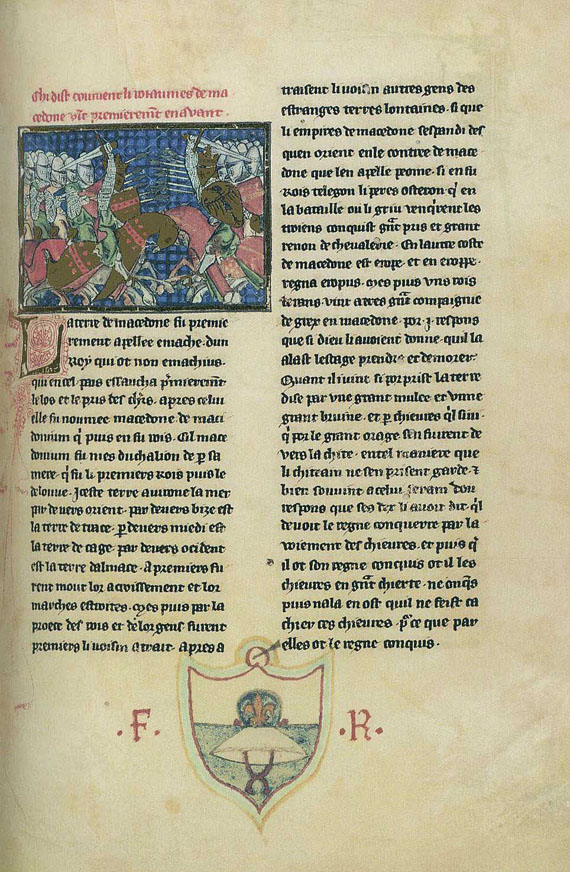 Chi dist comment li roiaumes de ma
cedone vĩt premieremt en avant.
La terre de macedone fu premie
rement apellee emache. dun
Roy qui ot non emachius.
qui en cel pais essaucha p̃mieremẽt
le los et le pris des ch̃rs. apres celui
elle fu nommee macedone. de maci
donium q̃ puis en fu rois. Cil mace
donium fu nies duchalion de p̱ sa
mere. q̃ fu li premiers rois puis le
deloiuue. Iceste terre auirone la mer
par deuers orient. par deuers bize est
la terre de trace. p̱ deuers miedi est
la terre de cage. par deuers occident
est la terre dalmace. A premiers fu
rent mout lor acroissement et lor
marches estroites. Mes puis par la
proece des rois et de lor gens furent
premiers li uoisin atrait. apres a
traisent li uoisin autres gens des
estranges terres lontaines. si que
li empires de macedone sespandi des
quen orient en le contree de mace
done que len apelle peone. si en fu
Rois telegon li peres osteron. q̃ en
la bataille ou li griu venq̃rent les
troiens conquist gñt pris et grant
renon de cheualerie. En lautre coste
de macedone est erope. et en eroppe.
regna eropus. Mes puis vns rois
vint a tres gñt compaignie
de grex en macedone. por .j. respons
que si dieu li auoient donne. quil la
alast lestage prendre et demorer.
Quant il i uint si porprist la terre
dise par vne grant mulce et vnne
grant bruine. et p̱ chieures q̃l siui.
q̃ por le grant orage sen fuirent de
vers la chite. entel maniere que
li chiteain ne sen prisent garde. ⁊
bien souuint a celui dou
respons que ses dex li auoit dit. q̃l
deuoit le regne conquerre par la
uoiement des chieures. et puis q̃
il ot son regne conquis ot il les
chieures en gñt chierte. ne onq̃s
puis nala en ost quil ne feist ca
chier ces chieures. p̃ ce que par
elles ot le regne conquis.
.F. .R.